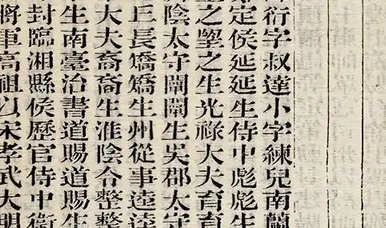 衍字叔達小字練兒南蘭
定侯延延生侍中彪彪生
之朢之生光祿大夫育育
陰太守闡闡生吳郡太守
丘長矯矯生州從事逵逵
大夫裔裔生淮陰令整整
生南臺治書道賜道賜生
封臨湘縣侯歷官侍中衛
將軍高祖以宋孝武大明